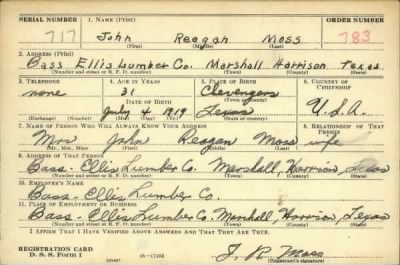 SERIAL NUMBER 1. NAME (Print) ORDER NUMBER
717 John Reagan Moss 783
(First) (Middle) (Last)
2. ADDRESS (Print)
Bass Ellis Lumber Co. Marshall Harrison Texas
(Number and street or R. F. D. number) (Town) (County) (State)
3. TELEPHONE 4. AGE IN YEARS 5. PLACE OF BIRTH 6. COUNTRY OF CITIZENSHIP
none 31 Clevengers
DATE OF BIRTH (Town or county)
July 4 1919 Texas U.S.A.
(Exchange) (Number) (Mo.) (Day) (Yr.) (State or country)
7. NAME OF PERSON WHO WILL ALWAYS KNOW YOUR ADDRESS 8. RELATIONSHIP OF THAT PERSON
Mrs John Reagan Moss wife
(Mr., Mrs., Miss) (First) (Middle) (Last)
9. ADDRESS OF THAT PERSON
Bass-Ellis Lumber Co. Marshall, Harrison Texas
(Number and street or R. F. D. number) (Town) (County) (State)
10. EMPLOYER'S NAME
Bass-Ellis Lumber Co.
11. PLACE OF EMPLOYMENT OR BUSINESS
Bass-Ellis Lumber Co. Marshall, Harrison, Texas
(Number and street or R. F. D. number) (Town) (County) (State)
I AFFIRM THAT I HAVE VERIFIED ABOVE ANSWERS AND THAT THEY ARE TRUE.
REGISTRATION CARD
D. S. S. Form 1 (over) J. R. Moss
(Registrant's signature)